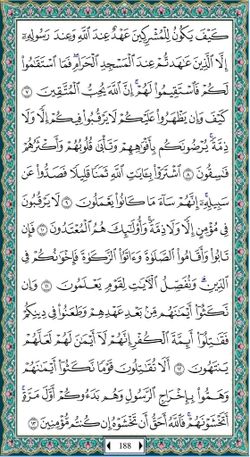 كَيْفَ يَكُونُ لِلْمُشْرِكِينَ عَهْدٌ عِندَ ٱللَّهِ وَعِندَ رَسُولِهِۦٓ
إِلَّا ٱلَّذِينَ عَٰهَدتُّمْ عِندَ ٱلْمَسْجِدِ ٱلْحَرَامِ ۖ فَمَا ٱسْتَقَٰمُوا۟
لَكُمْ فَٱسْتَقِيمُوا۟ لَهُمْ ۚ إِنَّ ٱللَّهَ يُحِبُّ ٱلْمُتَّقِينَ ٧
كَيْفَ وَإِن يَظْهَرُوا۟ عَلَيْكُمْ لَا يَرْقُبُوا۟ فِيكُمْ إِلًّا وَلَا
ذِمَّةً ۚ يُرْضُونَكُم بِأَفْوَٰهِهِمْ وَتَأْبَىٰ قُلُوبُهُمْ وَأَكْثَرُهُمْ
فَٰسِقُونَ ٨ ٱشْتَرَوْا۟ بِـَٔايَٰتِ ٱللَّهِ ثَمَنًا قَلِيلًا فَصَدُّوا۟ عَن
سَبِيلِهِۦٓ ۚ إِنَّهُمْ سَآءَ مَا كَانُوا۟ يَعْمَلُونَ ٩ لَا يَرْقُبُونَ
فِى مُؤْمِنٍ إِلًّا وَلَا ذِمَّةً ۚ وَأُو۟لَٰٓئِكَ هُمُ ٱلْمُعْتَدُونَ ١٠ فَإِن
تَابُوا۟ وَأَقَامُوا۟ ٱلصَّلَوٰةَ وَءَاتَوُا۟ ٱلزَّكَوٰةَ فَإِخْوَٰنُكُمْ فِى
ٱلدِّينِ ۗ وَنُفَصِّلُ ٱلْءَايَٰتِ لِقَوْمٍ يَعْلَمُونَ ١١ وَإِن
نَّكَثُوٓا۟ أَيْمَٰنَهُم مِّنۢ بَعْدِ عَهْدِهِمْ وَطَعَنُوا۟ فِى دِينِكُمْ
فَقَٰتِلُوٓا۟ أَئِمَّةَ ٱلْكُفْرِ ۙ إِنَّهُمْ لَآ أَيْمَٰنَ لَهُمْ لَعَلَّهُمْ
يَنتَهُونَ ١٢ أَلَا تُقَٰتِلُونَ قَوْمًا نَّكَثُوٓا۟ أَيْمَٰنَهُمْ
وَهَمُّوا۟ بِإِخْرَاجِ ٱلرَّسُولِ وَهُم بَدَءُوكُمْ أَوَّلَ مَرَّةٍ ۚ
أَتَخْشَوْنَهُمْ ۚ فَٱللَّهُ أَحَقُّ أَن تَخْشَوْهُ إِن كُنتُم مُّؤْمِنِينَ ١٣
188